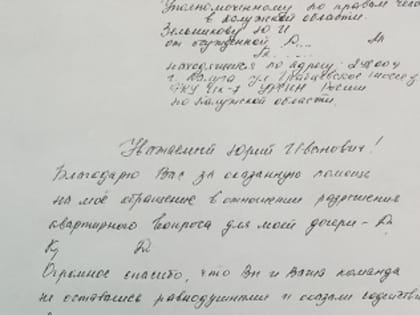 Уполномоченному по правам чело
в Калужской области.
Зельникову Ю И
от осужденной
находящиеся по адресу: 248004
г. Калуга ул Грабцевское шоссе
ФКУ ИК-7 УФСИН России
по Калужской области.
Уважаемый Юрий Иванович!
Благодарю Вас за оказанную помощь
на моё обращение в отношении разрешения
квартирного вопроса для моей дочери -
Огромное спасибо, что Вы и Ваша команда
не остались равнодушными и оказали содействи